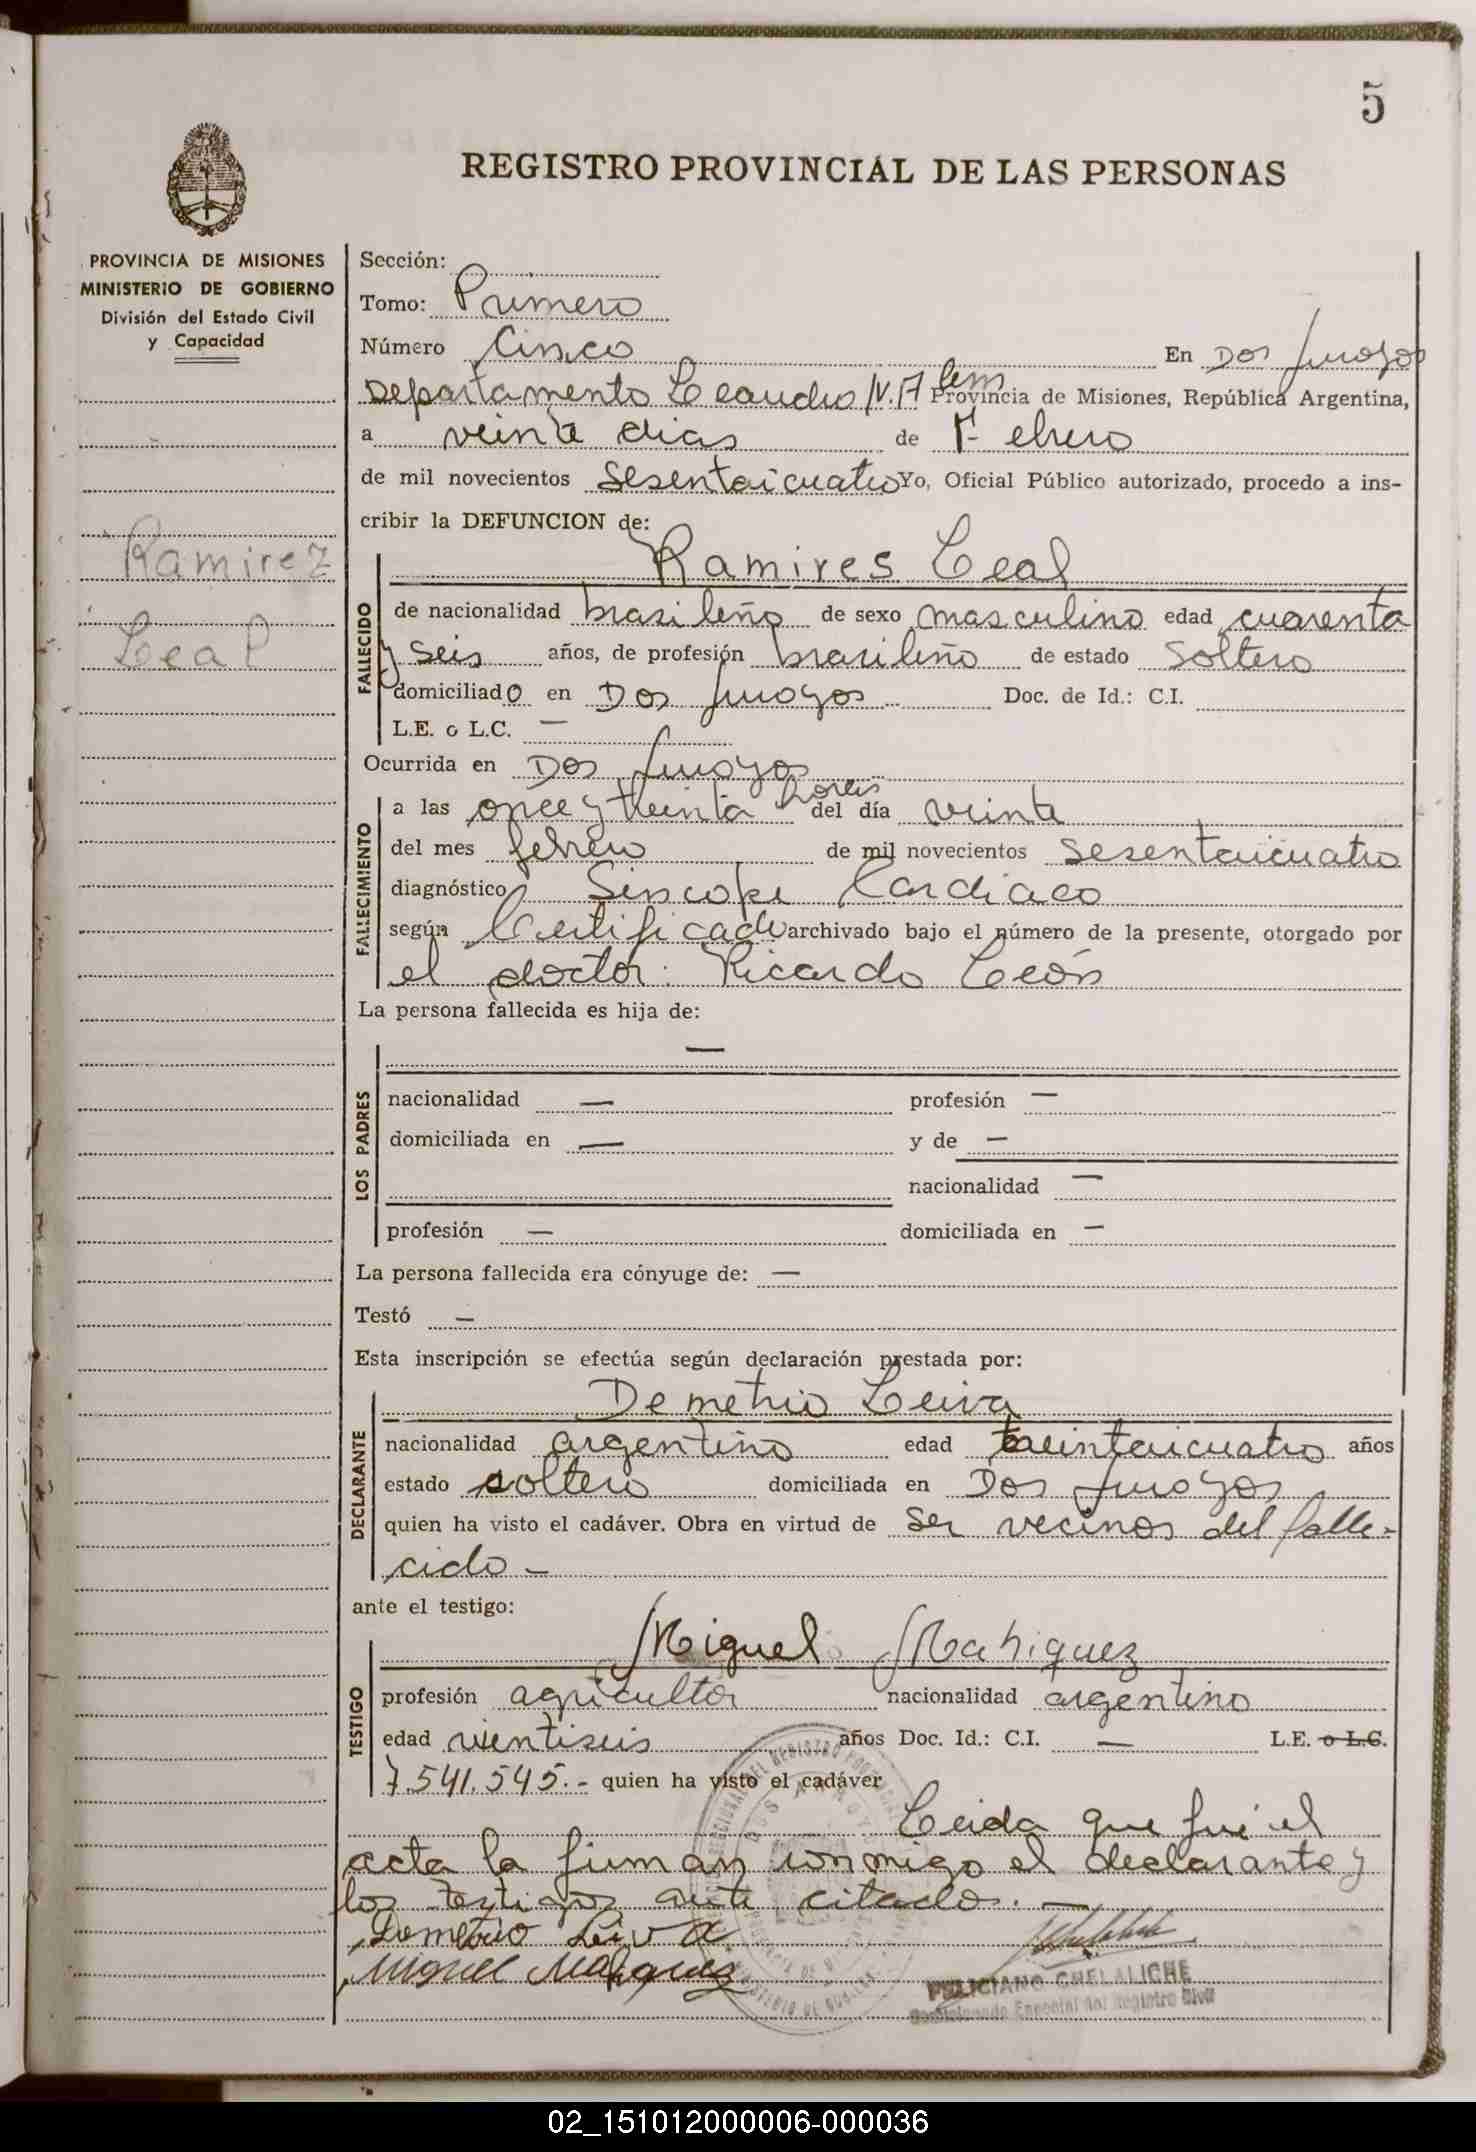 5
REGISTRO PROVINCIAL DE LAS PERSONAS
PROVINCIA DE MISIONES
MINISTERIO DE GOBIERNO
División del Estado Civil
y Capacidad
Ramirez
Leal
Sección:
Tomo: Primero
Número Cinco En Dos Arroyos
Departamento Leandro N. Alem Provincia de Misiones, República Argentina,
a veinte dias de Febrero
de mil novecientos Sesentaicuatro Yo, Oficial Público autorizado, procedo a ins-
cribir la DEFUNCION de:
Ramires Leal
FALLECIDO
de nacionalidad brasileño de sexo masculino edad cuarenta
y seis años, de profesión brasileño de estado soltero
domiciliado en Dos Arroyos Doc. de Id.: C.I.
L.E. o L.C. —
Ocurrida en Dos Arroyos
FALLECIMIENTO
a las once y treinta horas del día veinte
del mes febrero de mil novecientos sesentaicuatro
diagnóstico Sincope Cardiaco
según Certificado archivado bajo el número de la presente, otorgado por
el doctor: Ricardo León
La persona fallecida es hija de:
—
LOS PADRES
nacionalidad — profesión —
domiciliada en — y de —
nacionalidad —
profesión — domiciliada en —
La persona fallecida era cónyuge de: —
Testó —
Esta inscripción se efectúa según declaración prestada por:
Demetrio Leiva
DECLARANTE
nacionalidad argentino edad treintaicuatro años
estado soltero domiciliada en Dos Arroyos
quien ha visto el cadáver. Obra en virtud de ser vecinos del falle-
cido —
ante el testigo:
Miguel Mahiquez
TESTIGO
profesión agricultor nacionalidad argentino
edad vientiseis años Doc. Id.: C.I. — L.E. o L.C.
7.541.545.- quien ha visto el cadáver
Leida que fué el
acta la firman conmigo el declarante y
los testigos ante citado. —
Demetrio Leiva
Miguel Mahiquez
FELICIANO CHELALICHE
Comisionado Especial del Registro Civil
02_151012000006-000036